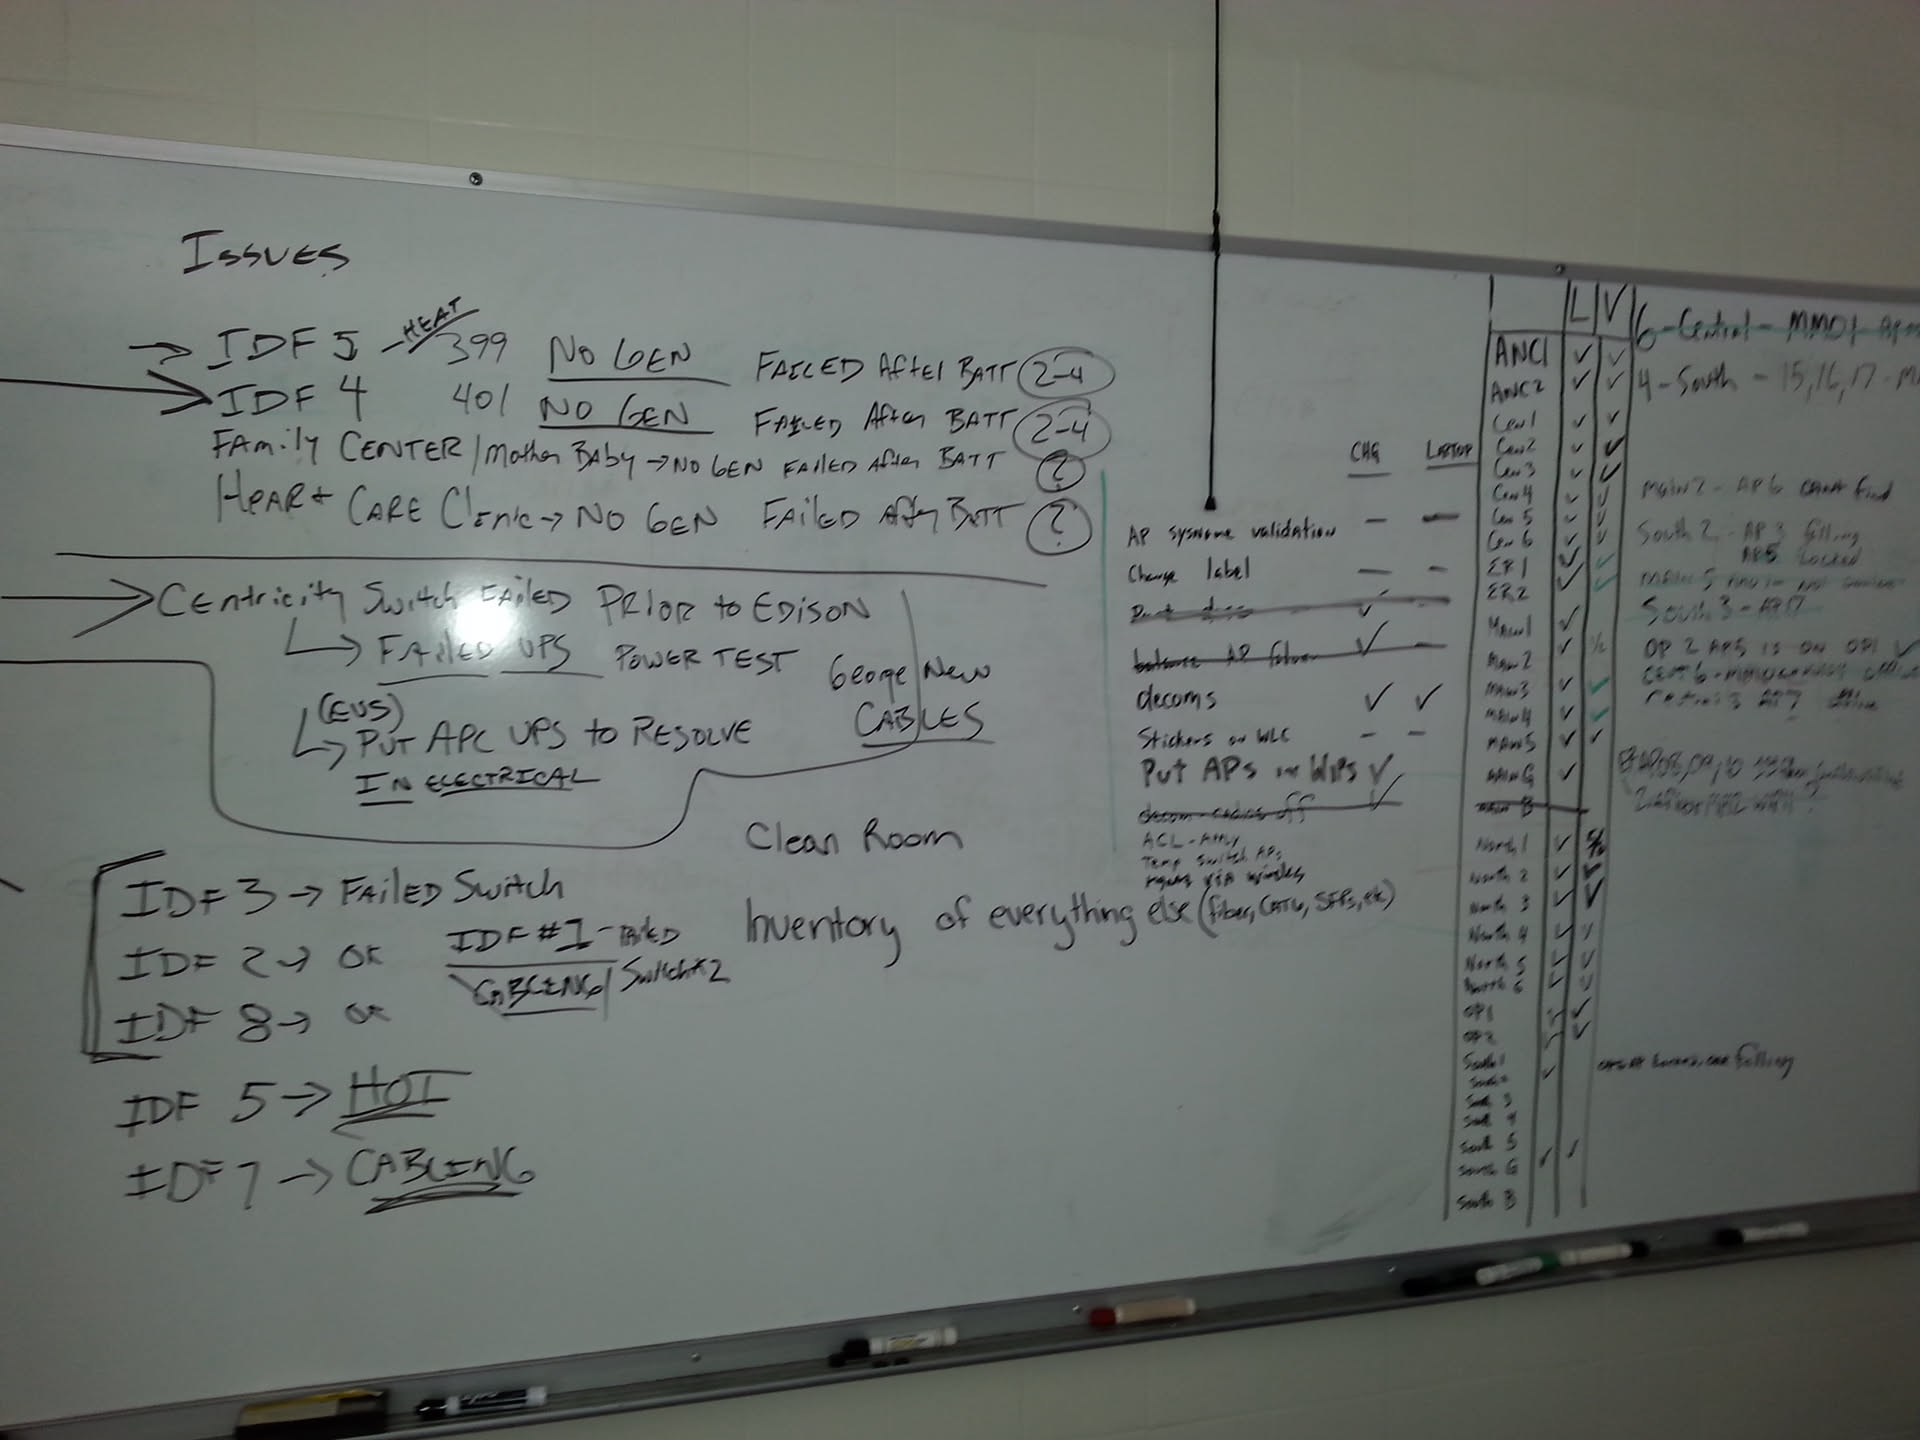 ISSUES
→ IDF 5 - HEAT 399 NO GEN FAILED AFTER BATT 2-4
→ IDF 4 401 NO GEN FAILED AFTER BATT 2-4
FAMILY CENTER / Mother BABY → NO GEN FAILED AFTER BATT ?
HEART CARE CLINIC → NO GEN FAILED AFTER BATT ?
→ CENTRICITY SWITCH FAILED PRIOR to EDISON
↳ FAILED UPS POWER TEST
(EUS)
↳ PUT APC UPS to RESOLVE
IN ELECTRICAL
George New
CABLES
IDF 3 → FAILED SWITCH
IDF 2 → OK
IDF 8 → OK
IDF #1 - FAILED
CABLING / Switch #2
IDF 5 → HOT
IDF 7 → CABLING
Clean Room
Inventory of everything else (fiber, CAT6, SFPs, etc)
CHG LAPTOP
AP sysname validation – –
Change label – –
decoms ✓ ✓
Stickers on WLC – –
Put APs in WIPS ✓
decom radios off ✓
ACL - Apply
Temp switch APs
via
L V
ANC1 ✓ ✓
ANC2 ✓ ✓
Cen 1 ✓ ✓
Cen 2 ✓ ✓
Cen 3 ✓ ✓
Cen 4 ✓ ✓
Cen 5 ✓ ✓
Cen 6 ✓ ✓
ER 1 ✓ ✓
ER 2 ✓ ✓
Main 1 ✓
Main 2 ✓ 1/2
Main 3 ✓ ✓
Main 4 ✓ ✓
Main 5 ✓ ✓
Main G ✓
Main B
North 1 ✓
North 2 ✓ ✓
North 3 ✓ ✓
North 4 ✓ ✓
North 5 ✓ ✓
North 6 ✓ ✓
OP1 ✓
OP2 ✓
South 1
South 2 ✓
South 3
South 4
South 5
South G ✓ ✓
South B
6 - Central - MMD1
4 - South - 15, 16, 17 -
Main 2 - AP6 cant find
South 2 - AP3 falling
AP5 Locked
South 3 - AP17
OP 2 AP5 IS ON OP1 ✓
falling